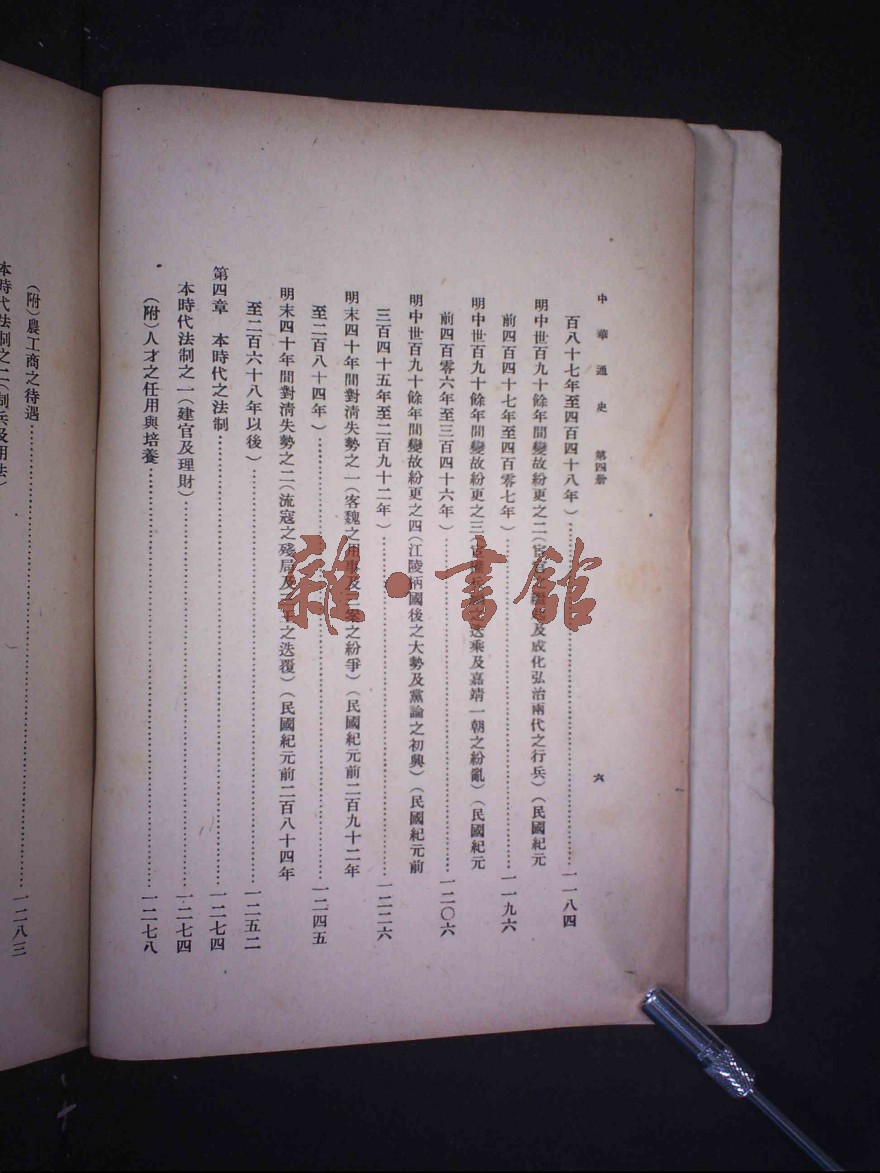 中華通史 第四册 六
百八十七年至四百四十八年）……一一八四
明中世百九十餘年間變故紛更之二（宦官之及成化弘治兩代之行兵）（民國紀元
前四百四十七年至四百零七年）……一一九六
明中世百九十餘年間變故紛更之三（迭乘及嘉靖一朝之紛亂）（民國紀元
前四百零六年至三百四十六年）……一二〇六
明中世百九十餘年間變故紛更之四（江陵柄國後之大勢及黨論之初興）（民國紀元前
三百四十五年至二百九十二年）……一二二六
明末四十年間對淸失勢之一（客魏之用事及三案之紛爭）（民國紀元前二百九十二年
至二百八十四年）……一二四五
明末四十年間對淸失勢之二（流寇之殘局及之迭覆）（民國紀元前二百八十四年
至二百六十八年以後）……一二五二
第四章 本時代之法制……一二七四
本時代法制之一（建官及理財）……一二七四
（附）人才之任用與培養……一二七八
（附）農工商之待遇……一二八三
本時代法制之二（制兵及用法）
雜·書館